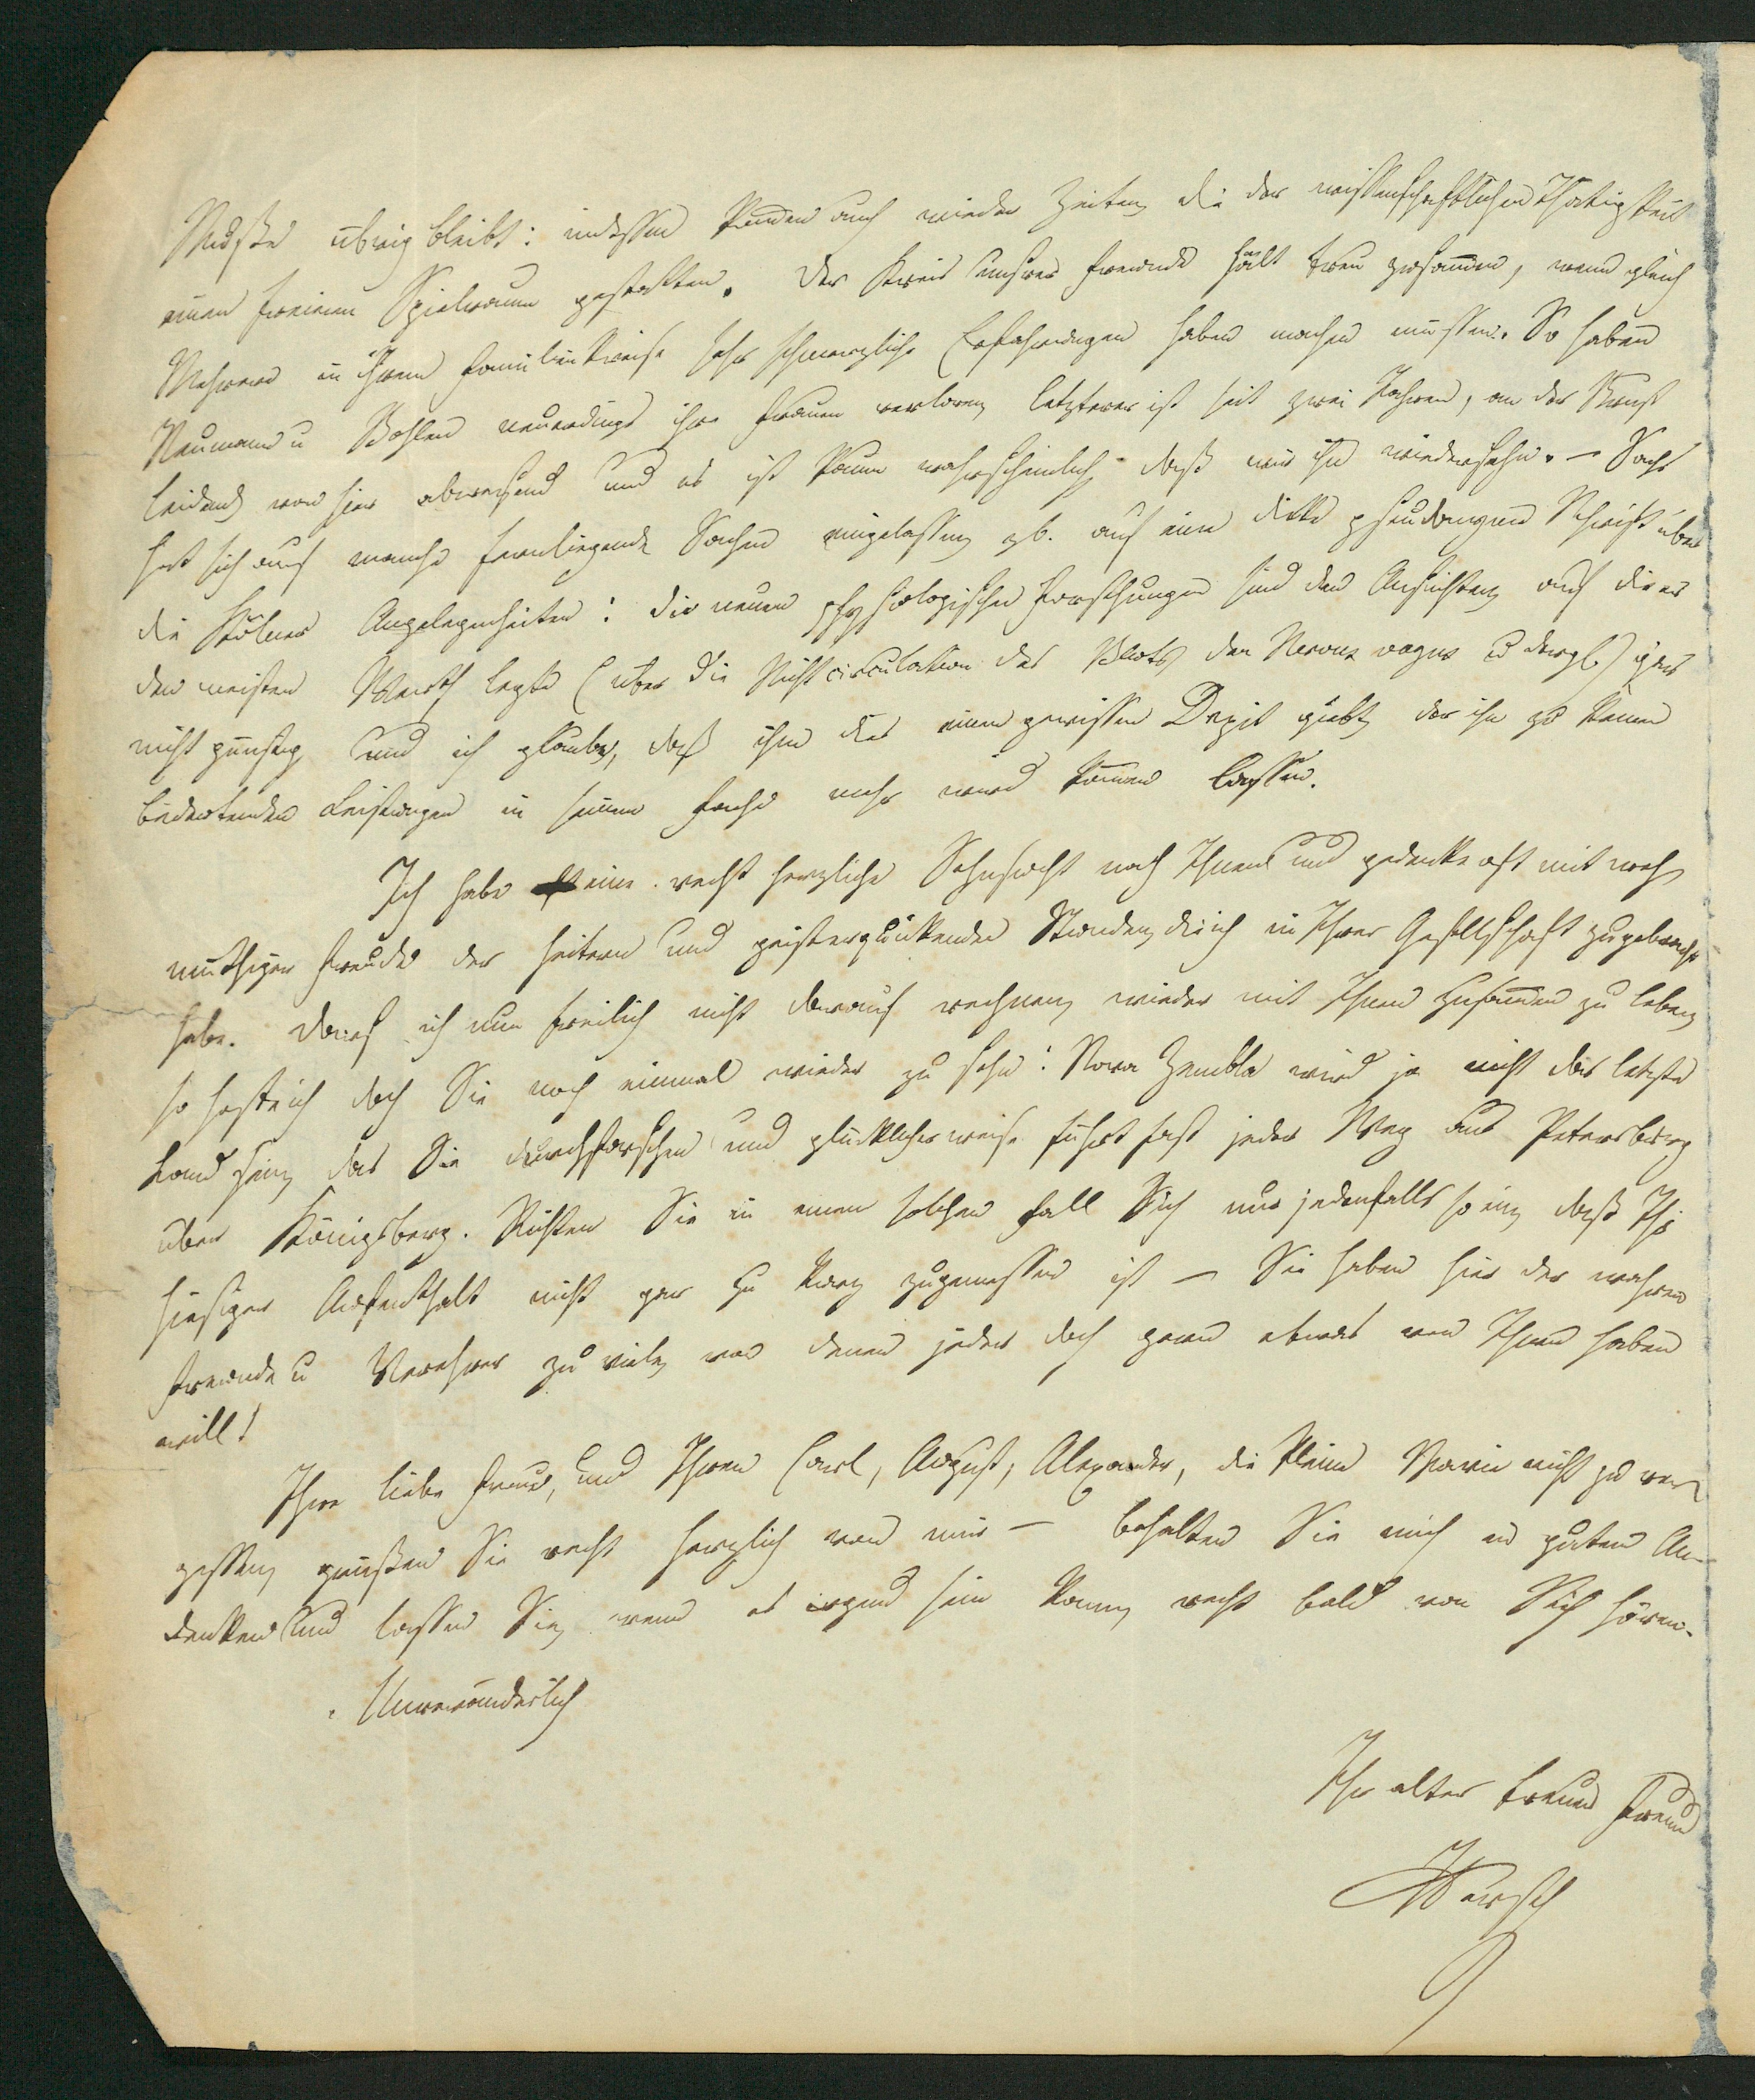 Muße übrig bleibt: indessen kommen auch wieder Zeiten die der wissenschaftlichen Thätigkeit
einen freieren Spielraum gestatten. Der Kreis unsrer Freunde hält treu zusammen, wenn gleich
Mehrere in ihrem Familienkreise sehr schmerzliche Erfahrungen haben machen müssen. So haben
Neumann u Bohlen neuerdings ihre Frauen verloren, letzterer ist seit zwei Jahren, an der Brust
leidend, von hier abwesend und es ist kaum wahrscheinlich, daß wir ihn wiedersehn. – Sachs
hat sich auf manche fernliegende Sachen eingelassen, zb. auf eine dicke pseudonyme Schrift über
die Kölner Angelegenheiten: die neuen physiologischen Forschungen sind den Ansichten, auf die er
den meisten Werth legte (über die Nichtcirculation des Bluts, den Nervus vagus u dergl) gar
nicht günstig und ich glaube, daß ihm dies einen gewissen Depit giebt, der ihn zu keinen
bedeutenden Leistungen in seinem Fache mehr wird kommen lassen.
Ich habe eine recht herzliche Sehnsucht nach Ihnen und gedenke oft mit weh
müthiger Freude der heitern und geisterquickenden Stunden, die ich in Ihrer Gesellschaft zugebracht
habe. Darf ich nun freilich nicht darauf rechnen, wieder mit Ihnen zusammen zu leben,
so hoffe ich doch Sie noch einmal wieder zu sehn: Nova Zembla wird ja nicht das letzte
Land sein, das Sie durchforschen und glücklicherweise führt fast jeder Weg aus Petersburg
über Königsberg. Richten Sie in einem solchen Fall Sich nur jedenfalls so ein, daß Ihr
hiesiger Aufenthalt nicht gar zu karg zugemessen ist – Sie haben hier der wahren
Freunde u Verehrer zu viele, von denen jeder doch gern etwas von Ihnen haben
will!
Ihre liebe Frau, und Ihren Carl, August, Alexander, die kleine Marie nicht zu ver
gessen, grüßen Sie recht herzlich von mir – behalten Sie mich in gutem An-
denken und lassen Sie, wenn es irgend sein kann, recht bald von Sich hören.
Unveränderlich
Ihr alter treuer Freund